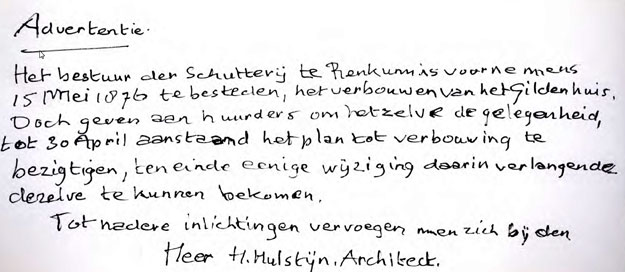 Advertentie.
Het bestuur der Schutterij te Renkum is voornemens
15 Mei 1876 te besteden, het verbouwen van het Gildenhuis.
Doch geven aan huurders om hetzelve de gelegenheid,
tot 30 April aanstaand het plan tot verbouwing te
bezigtigen, ten einde eenige wijziging daarin verlangende
dezelve te kunnen bekomen.
Tot nadere inlichtingen vervoegen men zich bij den
Heer H. Hulstijn. Architect.